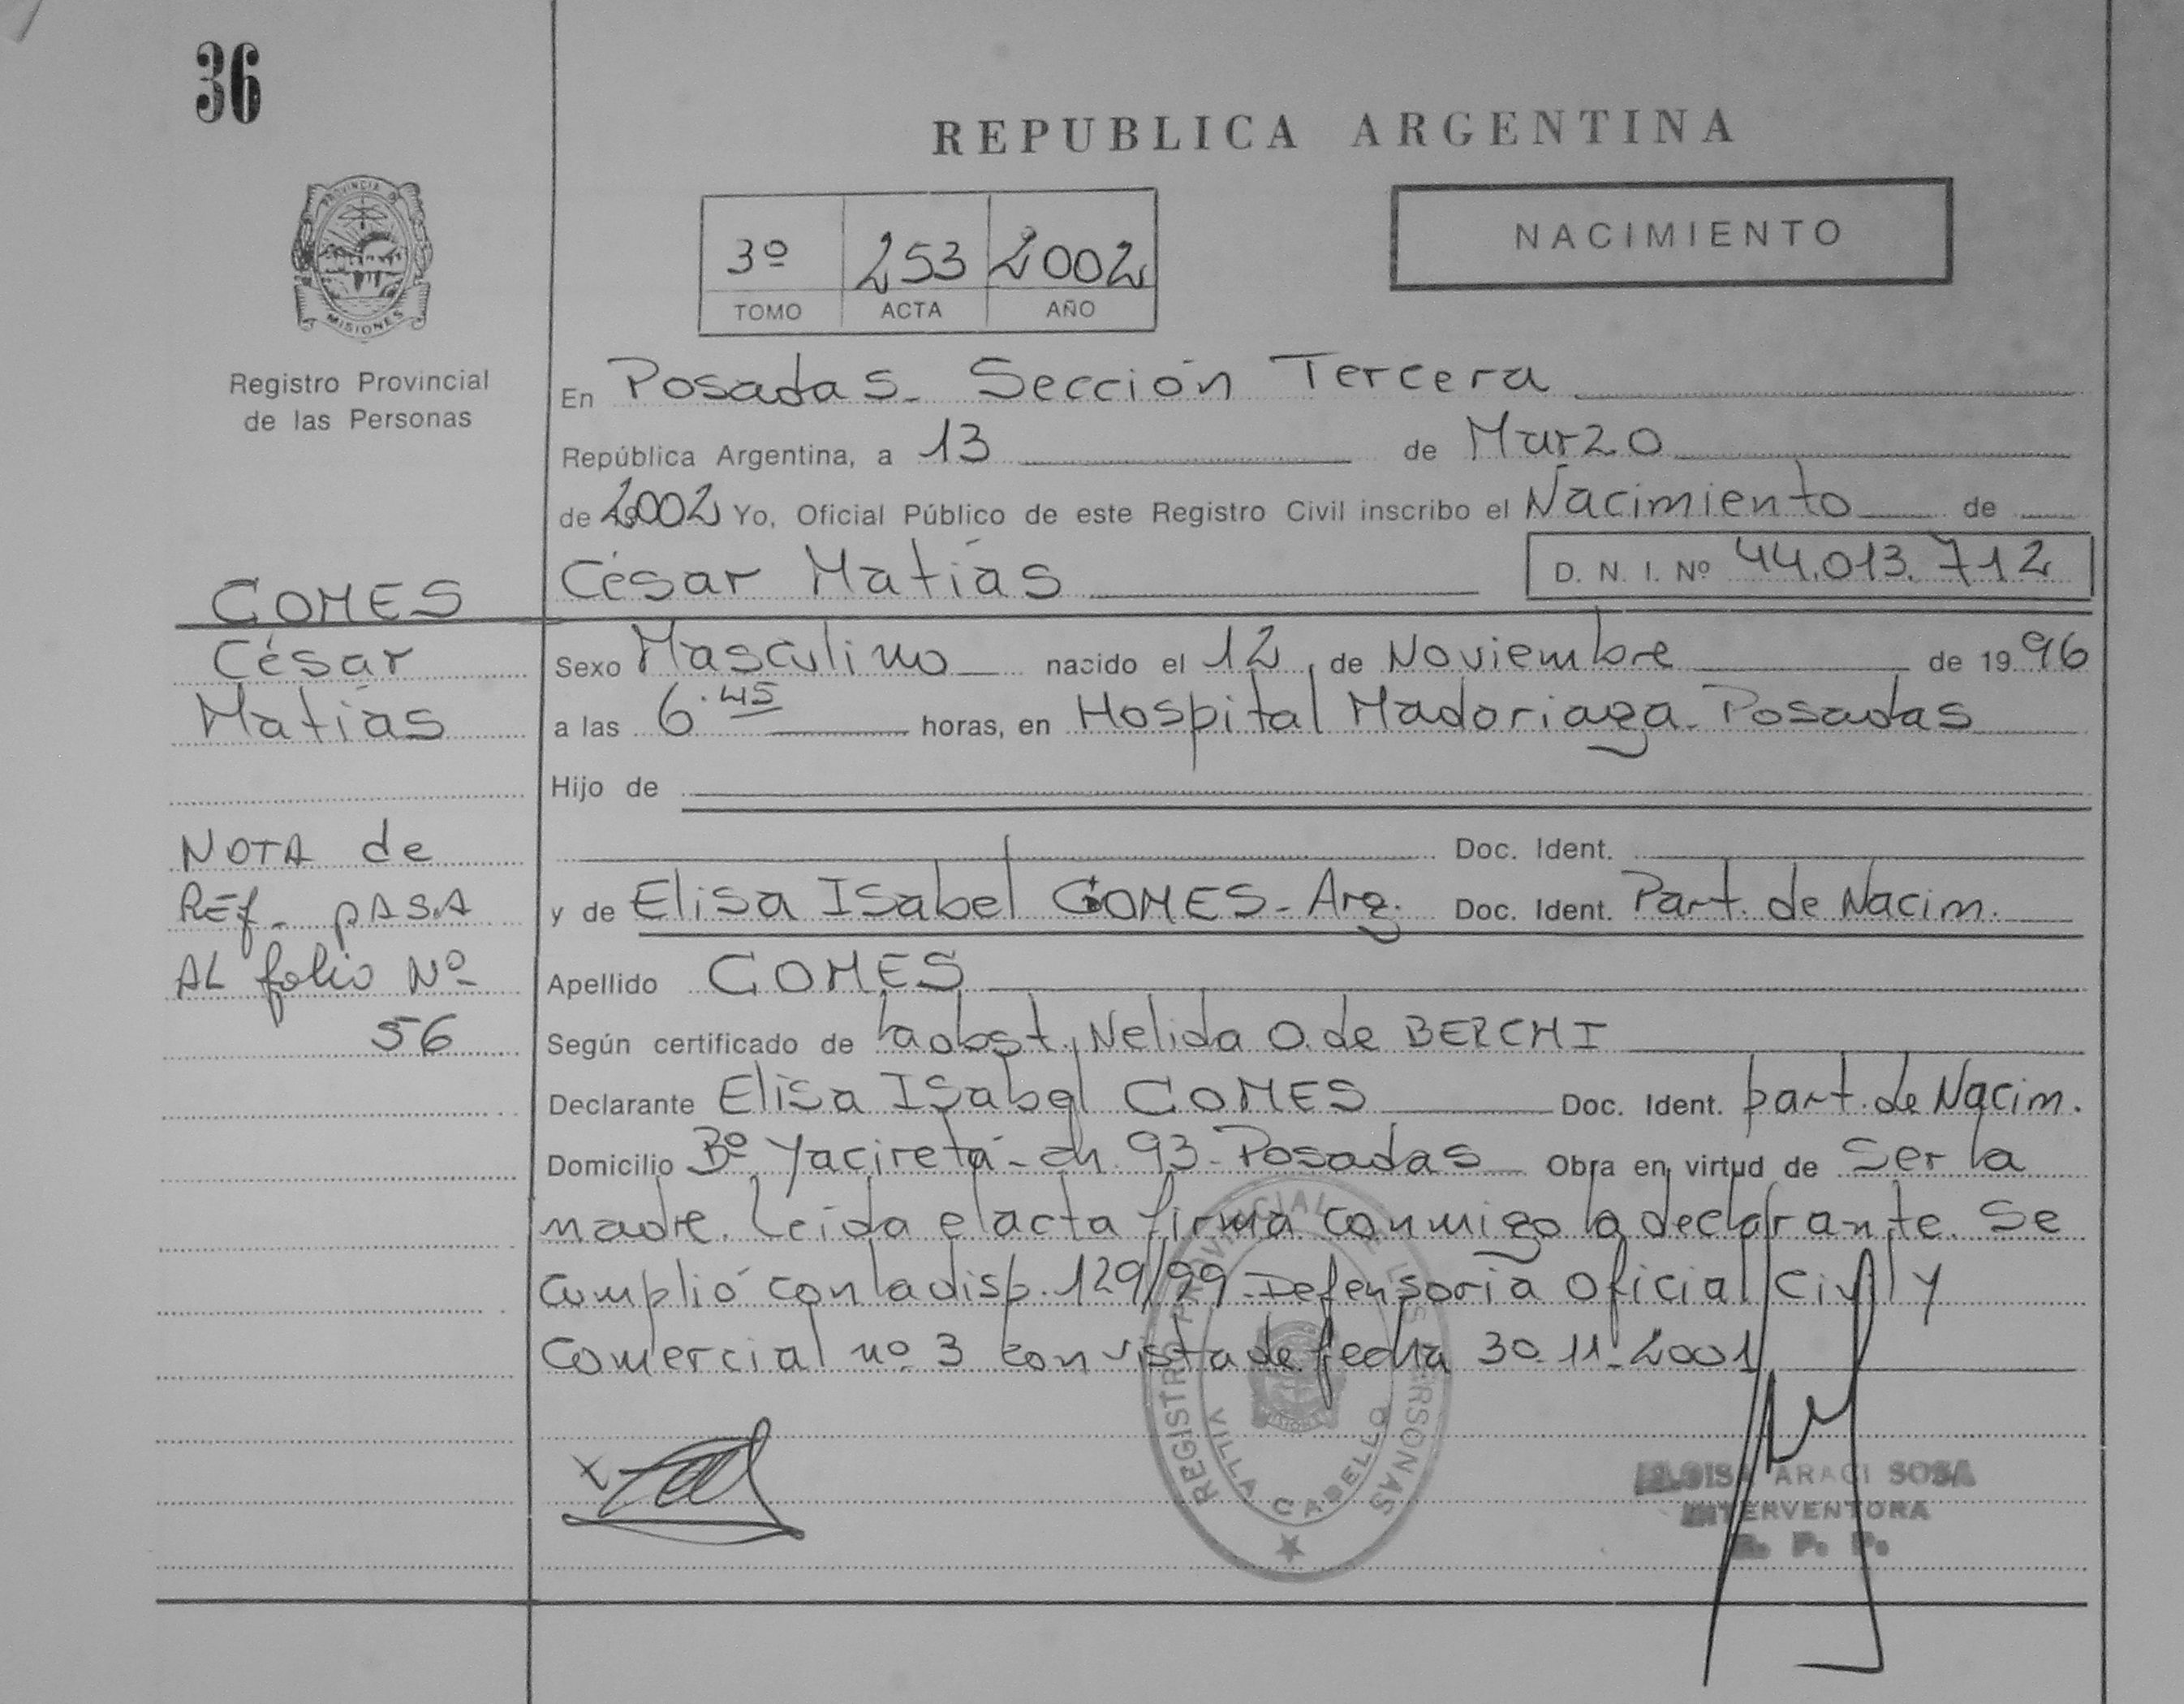 36
REPUBLICA ARGENTINA
PROVINCIA DE
MISIONES
Registro Provincial
de las Personas
3º 253 2002
TOMO ACTA AÑO
NACIMIENTO
En Posadas - Sección Tercera
República Argentina, a 13 de Marzo
de 2002 Yo, Oficial Público de este Registro Civil inscribo el Nacimiento de
César Matías D. N. I. Nº 44.013.712
Sexo Masculino nacido el 12 de Noviembre de 1996
a las 6.45 horas, en Hospital Madariaga - Posadas
Hijo de
Doc. Ident.
y de Elisa Isabel GOMES - Arg. Doc. Ident. Part. de Nacim.
Apellido GOMES
Según certificado de la obst. Nelida O. de BERCHI
Declarante Elisa Isabel GOMES Doc. Ident. part. de Nacim.
Domicilio Bº Yacireta - ch. 93 - Posadas Obra en virtud de Ser la
madre. Leída el acta firma conmigo la declarante. Se
cumplió con la disp. 129/99 - Defensoría Oficial Civil y
Comercial nº 3 con vista de fecha 30.11.2001
GOMES
César
Matías
NOTA de
REf. pASA
AL folio Nº
56
REGISTRO PROVINCIAL DE LAS PERSONAS
VILLA CABELLO
ARACI SOSA
INTERVENTORA
R. P. P.